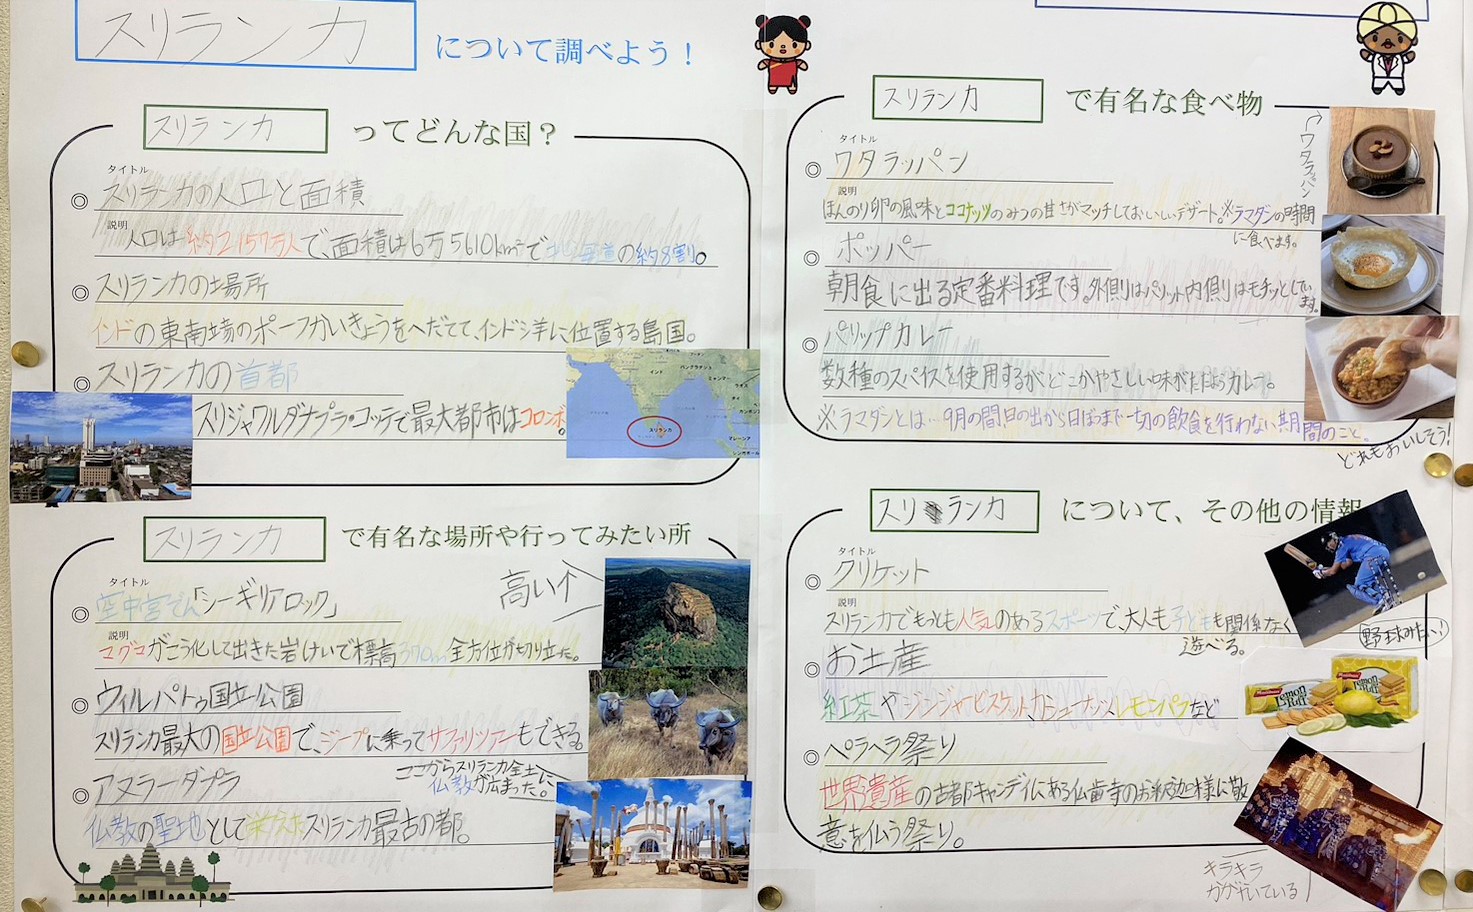 スリランカ
について調べよう！
スリランカ
ってどんな国？
タイトル
◎スリランカの人口と面積
説明
人口は約2157万人で、面積は6万5610km²で北海道の約8割。
◎スリランカの場所
インドの東南端のポークかいきょうをへだてて、インド洋に位置する島国。
◎スリランカの首都
スリジャワルダナプラ・コッテで最大都市はコロンボ。
インド
バングラデシュ
ミャンマー
ラオス
タイ
スリランカ
マレーシア
シンガポール
スリランカ
で有名な場所や行ってみたい所
タイトル
◎空中宮でん「シーギリアロック」
高い↑
説明
マグマがこう化して出きた岩けいで標高370m全方位が切り立った。
◎ウィルパトゥ国立公園
スリランカ最大の国立公園で、ジープに乗ってサファリツアーもできる。
◎アヌラーダプラ
ここからスリランカ全土に
仏教が広まった。
仏教の聖地として栄えたスリランカ最古の都。
スリランカ
で有名な食べ物
タイトル
◎ワタラッパン
ワタラッパン
説明
ほんのり卵の風味とココナッツのみつの甘さがマッチしておいしいデザート。※ラマダンの時間
に食べます。
◎ホッパー
朝食に出る定番料理です。外側はパリット内側はモチッとしてい
ます。
◎パリップカレー
数種のスパイスを使用するが、どこかやさしい味がただようカレー。
※ラマダンとは…9月の間、日の出から日ぼつまで一切の飲食を行わない期間のこと。
どれもおいしそう！
スリランカ
について、その他の情報
タイトル
◎クリケット
説明
スリランカでもっとも人気のあるスポーツで、大人も子どもも関係なく
遊べる。
野球みたい！
◎お土産
紅茶やジンジャービスケット、カシューナッツ、レモンパフなど
Lemon Puff
Lemon Puff
◎ペラヘラ祭り
世界遺産の古都キャンディにある仏歯寺のお釈迦様に敬
意を仏う祭り。
キラキラ
かがやいている